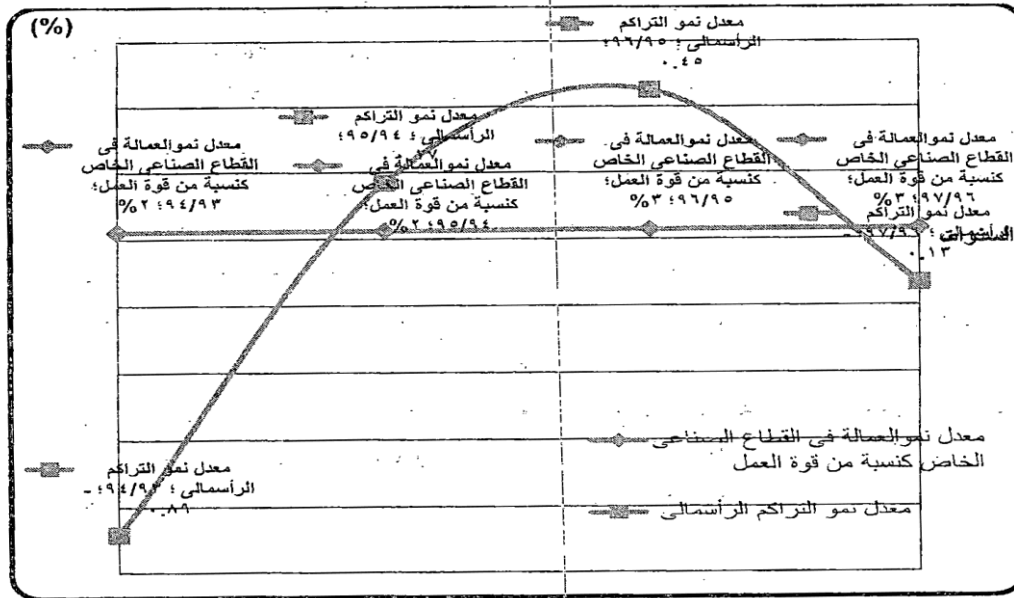 (%)
معدل نمو التراكم
الرأسمالى ؛ ٩٦/٩٥؛
٠.٤٥
معدل نمو التراكم
الرأسمالى ؛ ٩٥/٩٤؛
معدل نموالعمالة فى
القطاع الصناعى الخاص
كنسبة من قوة العمل؛
٩٤/٩٣؛ ٢%
معدل نموالعمالة فى
القطاع الصناعى الخاص
كنسبة من قوة العمل؛
٩٥/٩٤؛ ٢%
معدل نموالعمالة فى
القطاع الصناعى الخاص
كنسبة من قوة العمل؛
٩٦/٩٥؛ ٣%
معدل نموالعمالة فى
القطاع الصناعى الخاص
كنسبة من قوة العمل؛
٩٧/٩٦؛ ٣%
معدل نمو التراكم
الرأسمالى ؛ ٩٧/٩٦؛ -
٠.١٣
السنوات
معدل نمو التراكم
الرأسمالى ؛ ٩٤/٩٣؛ -
٠.٨٩
معدل نموالعمالة فى القطاع الصناعى
الخاص كنسبة من قوة العمل
معدل نمو التراكم الرأسمالى